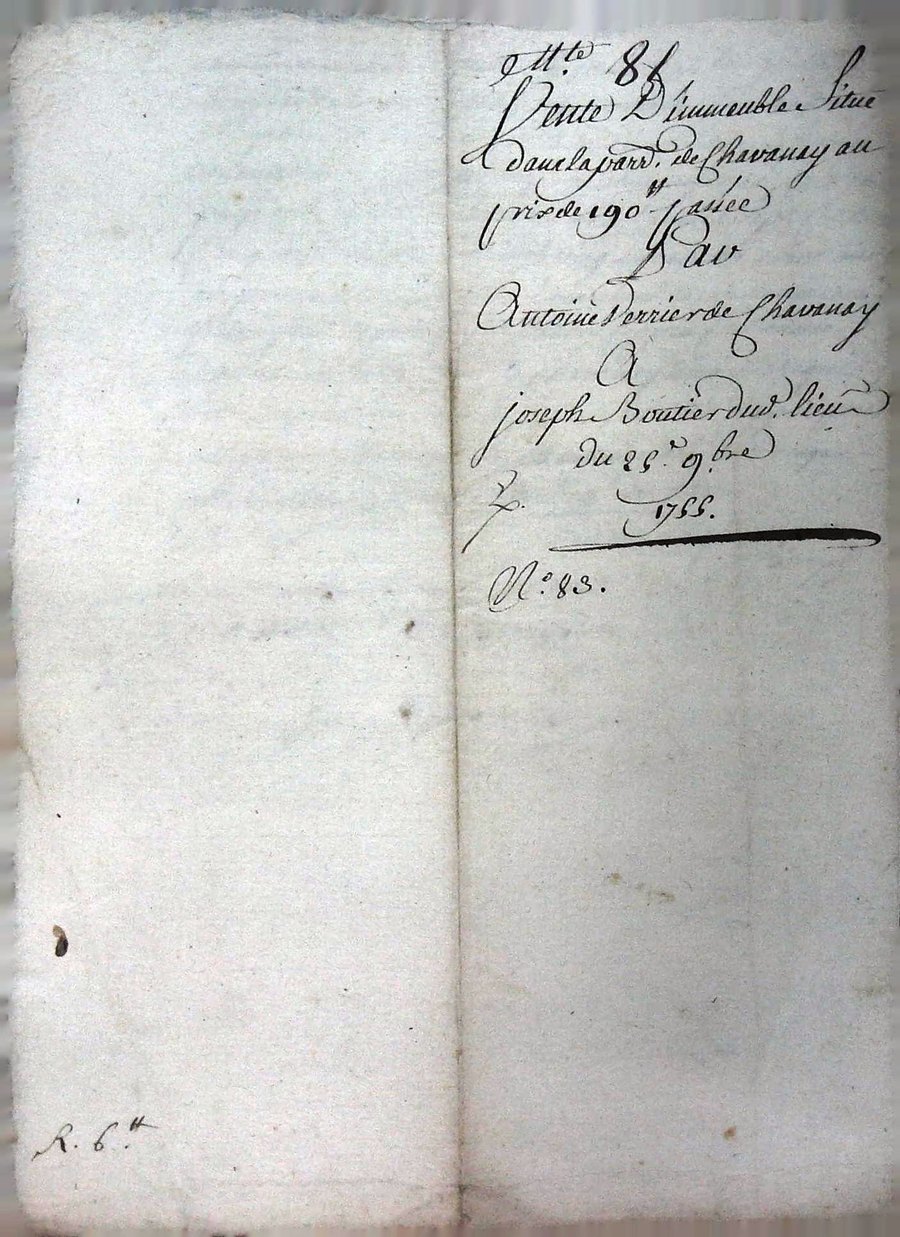 81
Vente D'immeuble Situé
dans la parr. de Chavanay au
prix de 190 ₶ passée
Par
Antoine Verrier de Chavanay
A
joseph Boutier dud. lieu
du 25.e 9.bre
1755.
N.o 83.
R. 6 ₶